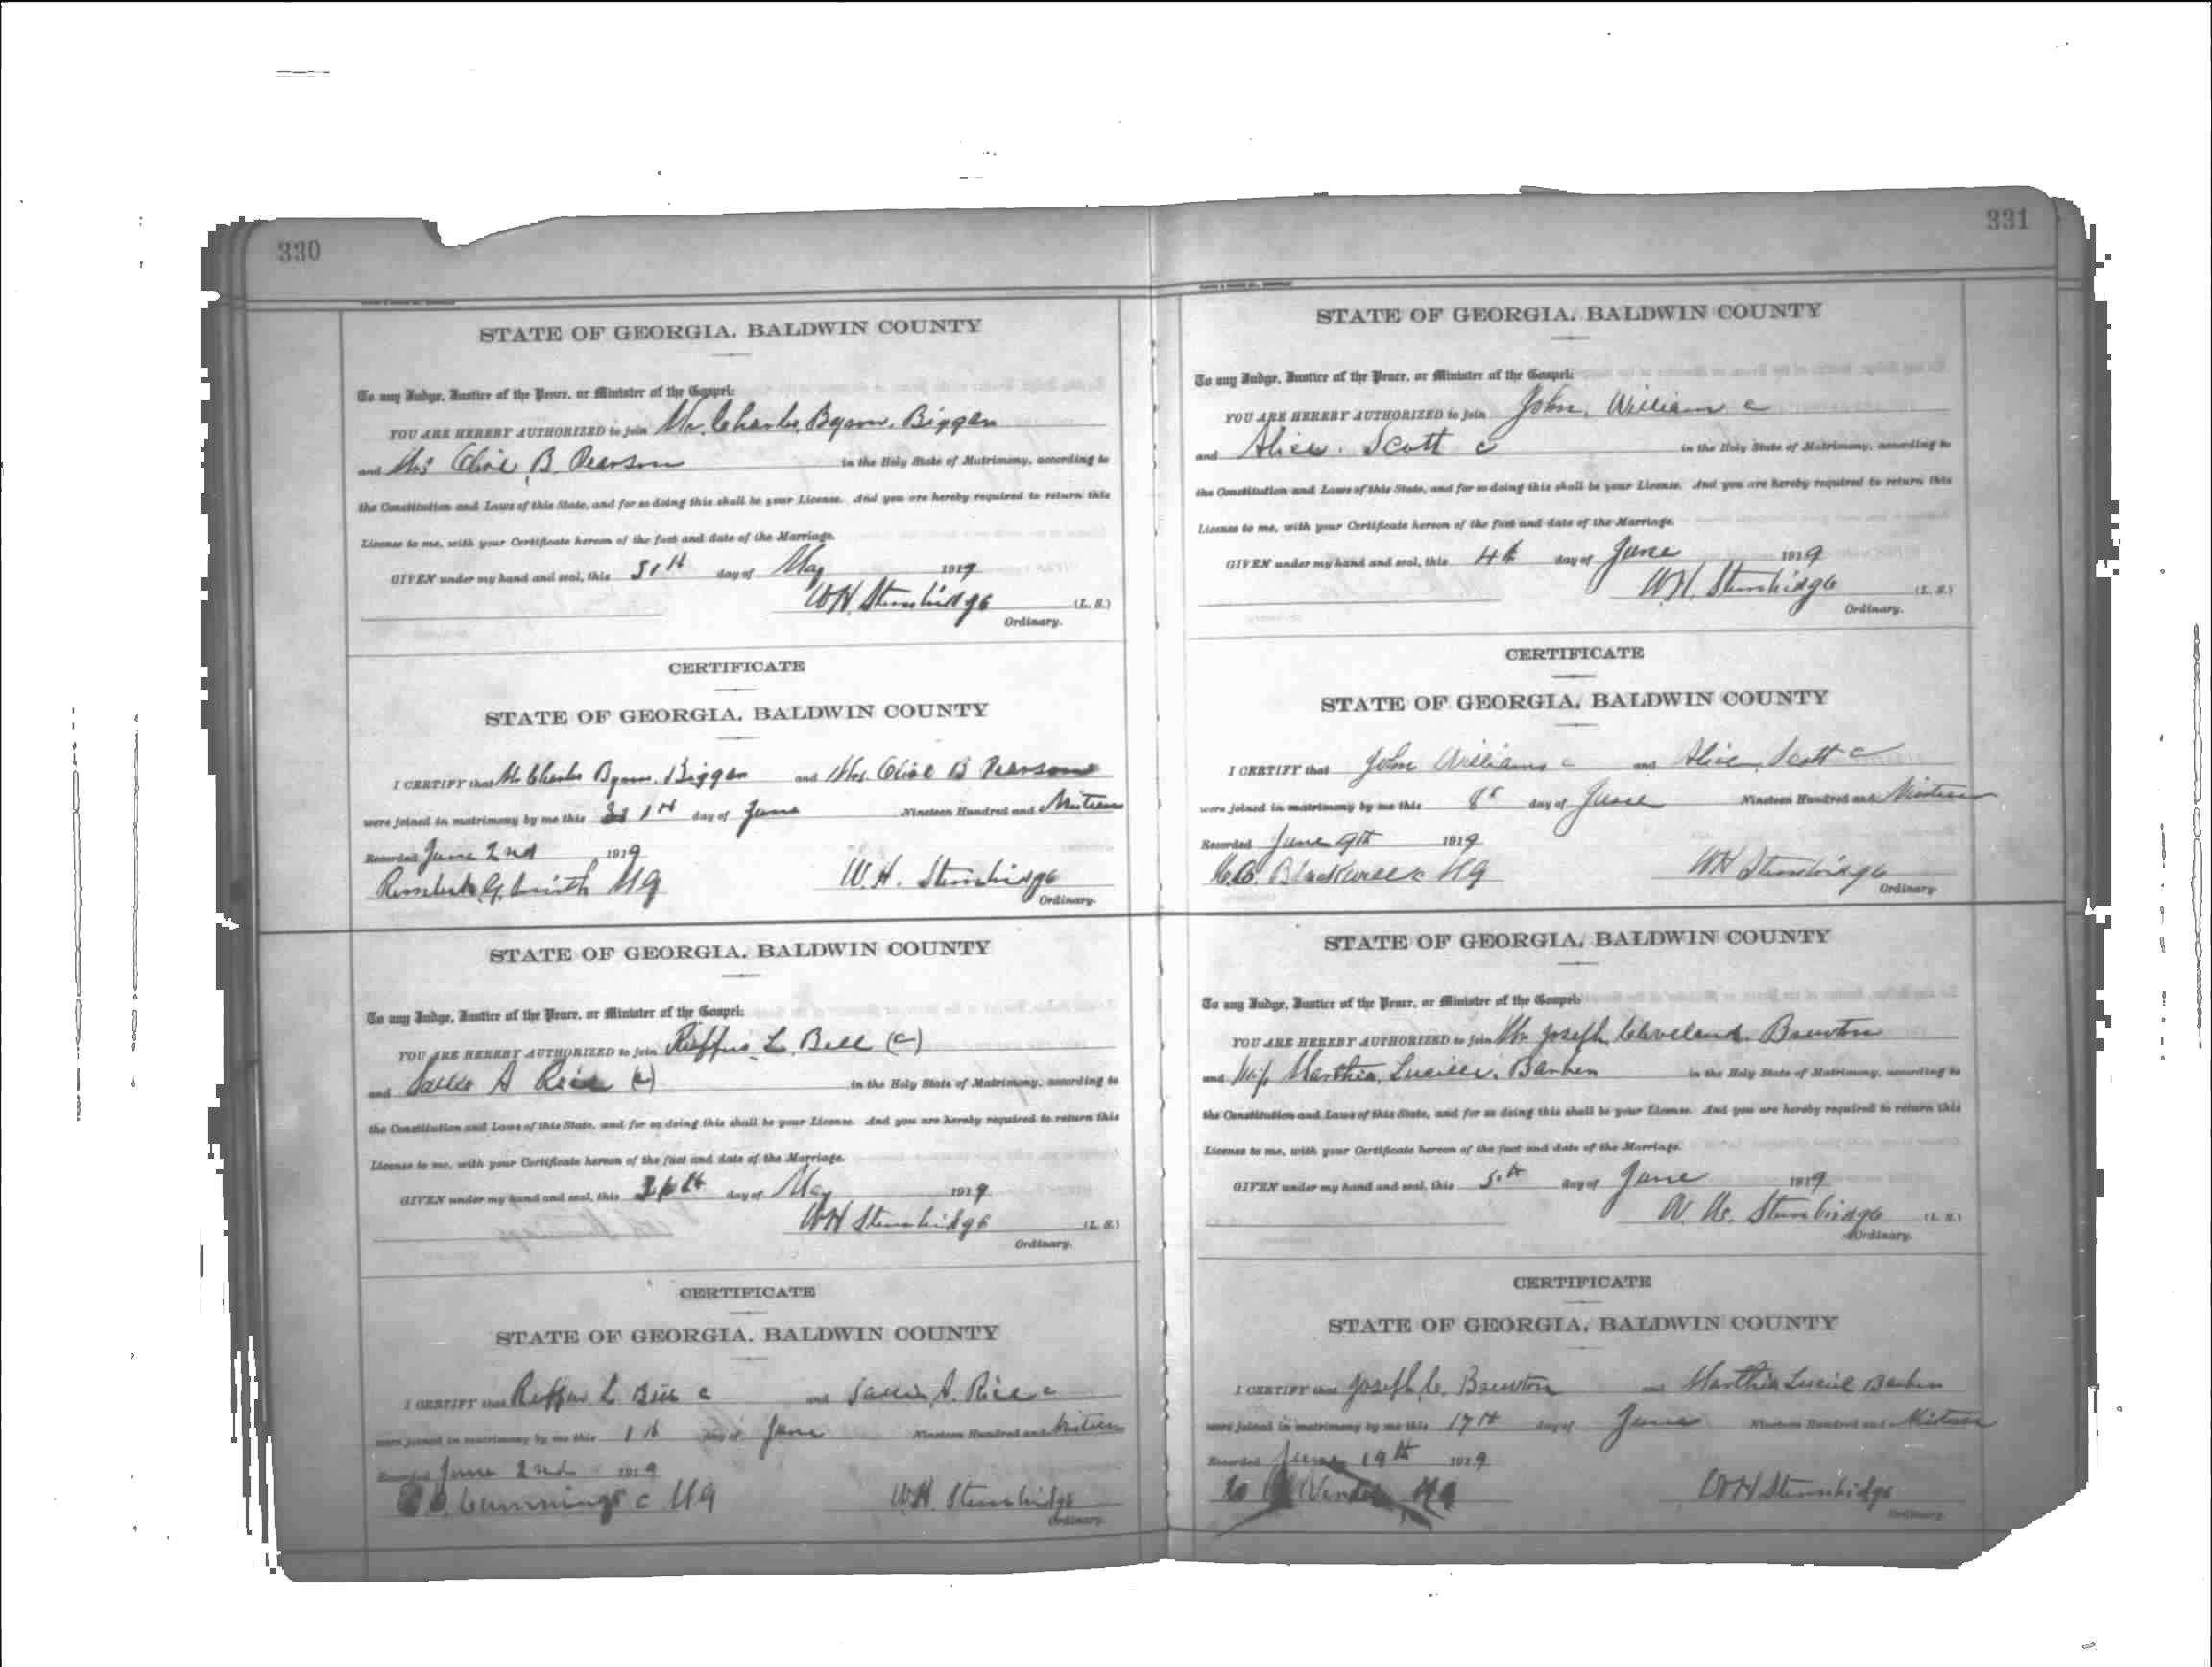 330
STATE OF GEORGIA. BALDWIN COUNTY
To any Judge, Justice of the Peace, or Minister of the Gospel:
YOU ARE HEREBY AUTHORIZED to join Mr. Charles Byrom. Biggers
and Mrs Olive B. Pearson in the Holy State of Matrimony, according to
the Constitution and Laws of this State, and for so doing this shall be your License. And you are hereby required to return this
License to me, with your Certificate hereon of the fact and date of the Marriage.
GIVEN under my hand and seal, this 31st day of May 1919
WH Stembridge (L. S.)
Ordinary.
CERTIFICATE
STATE OF GEORGIA. BALDWIN COUNTY
I CERTIFY that Mr Charles Byrom. Biggers and Mrs. Olive B Pearson
were joined in matrimony by me this 1st day of June Nineteen Hundred and
Recorded June 2nd 1919
Smith MG W. H. Stembridge
Ordinary.
STATE OF GEORGIA. BALDWIN COUNTY
To any Judge, Justice of the Peace, or Minister of the Gospel:
YOU ARE HEREBY AUTHORIZED to join L. Bell (c)
and Sallie A Rice (c) in the Holy State of Matrimony, according to
the Constitution and Laws of this State, and for so doing this shall be your License. And you are hereby required to return this
License to me, with your Certificate hereon of the fact and date of the Marriage.
GIVEN under my hand and seal, this day of May 1919
WH Stembridge (L. S.)
Ordinary.
CERTIFICATE
STATE OF GEORGIA. BALDWIN COUNTY
I CERTIFY that L. Bell c and Sallie A. Rice c
were joined in matrimony by me this 1st day of June Nineteen Hundred and
Recorded June 2nd 1919
Cummings c MG W.H. Stembridge
Ordinary.
331
STATE OF GEORGIA. BALDWIN COUNTY
To any Judge, Justice of the Peace, or Minister of the Gospel:
YOU ARE HEREBY AUTHORIZED to join John. William c
and Alice. Scott c in the Holy State of Matrimony, according to
the Constitution and Laws of this State, and for so doing this shall be your License. And you are hereby required to return this
License to me, with your Certificate hereon of the fact and date of the Marriage.
GIVEN under my hand and seal, this 4th day of June 1919
W.H. Stembridge (L. S.)
Ordinary.
CERTIFICATE
STATE OF GEORGIA. BALDWIN COUNTY
I CERTIFY that John Williams c and Alice Scott c
were joined in matrimony by me this 8th day of June Nineteen Hundred and
Recorded June 9th 1919
Blackwell c MG WH Stembridge
Ordinary.
STATE OF GEORGIA. BALDWIN COUNTY
To any Judge, Justice of the Peace, or Minister of the Gospel:
YOU ARE HEREBY AUTHORIZED to join Mr Joseph Cleveland Brewton
and Miss Marthia. Lucile. Barben in the Holy State of Matrimony, according to
the Constitution and Laws of this State, and for so doing this shall be your License. And you are hereby required to return this
License to me, with your Certificate hereon of the fact and date of the Marriage.
GIVEN under my hand and seal, this 5th day of June 1919
W. H. Stembridge (L. S.)
Ordinary.
CERTIFICATE
STATE OF GEORGIA. BALDWIN COUNTY
I CERTIFY that Joseph C. Brewton and Marthia Lucile Barben
were joined in matrimony by me this 17th day of June Nineteen Hundred and
Recorded June 19th 1919
MG WH Stembridge
Ordinary.